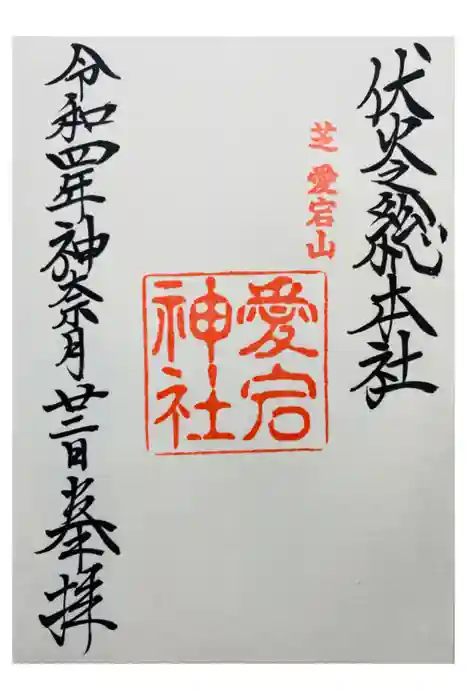 伏火之総本社
芝愛宕山
愛宕
神社
令和四年神奈月廿二日奉拝